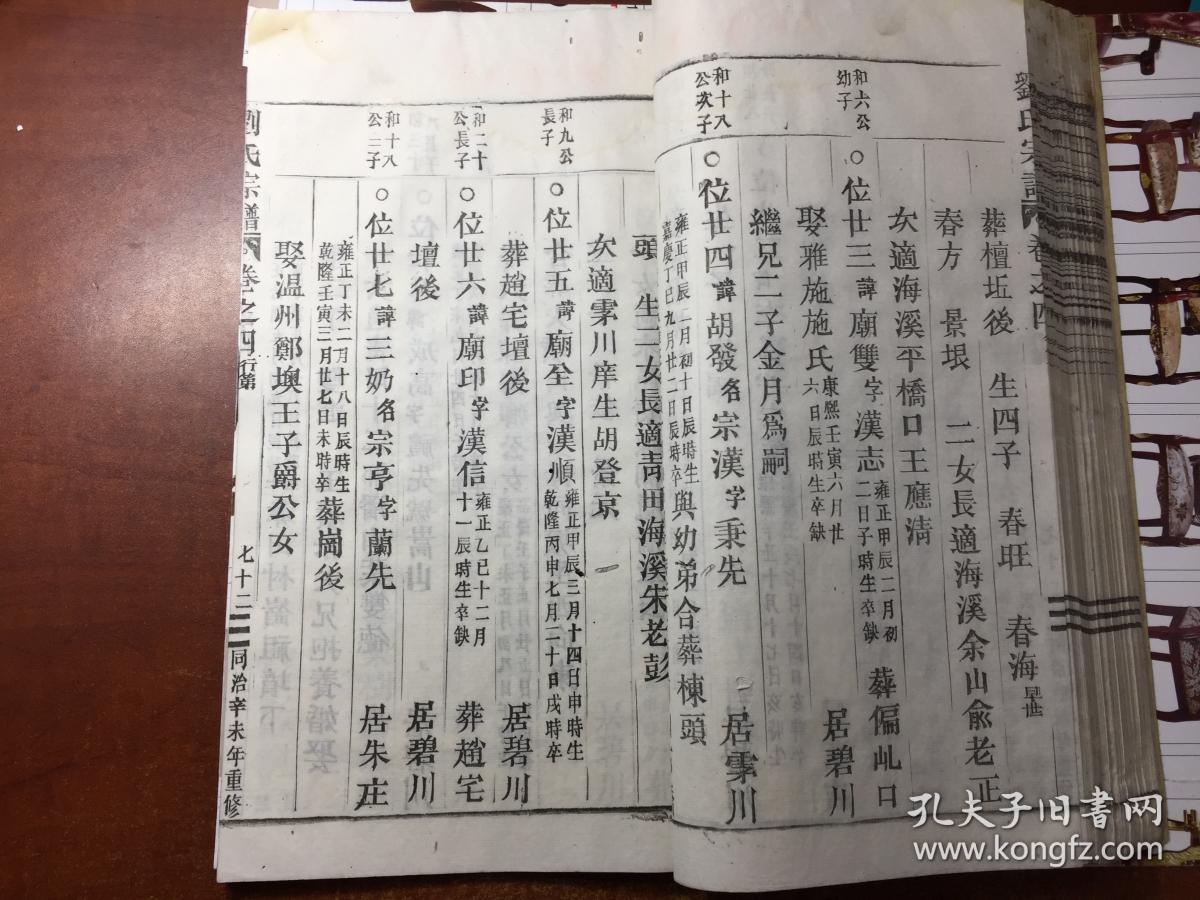 劉氏宗譜
卷之四
葬檀坵後 生四子 春旺 春海早世
春方 景垠 二女長適海溪余山俞老正
次適海溪平橋口王應淸
和六公幼子
○位廿三諱廟雙字漢志雍正甲辰二月初二日子時生卒缺葬偏乢口
娶雅施施氏康熙壬寅六月廿六日辰時生卒缺 居碧川
繼兄二子金月爲嗣
和十八公次子
○位廿四諱胡發名宗漢字秉先 居雩川
雍正甲辰二月初十日辰時生嘉慶丁巳九月廿二日辰時卒與幼弟合葬棟頭
頭 生二女長適靑田海溪朱老彭
次適雩川庠生胡登京
和九公長子
○位廿五諱廟全字漢順雍正甲辰三月十四日申時生乾隆丙申七月二十日戌時卒
葬趙宅壇後 居碧川
和二十公長子
○位廿六諱廟印字漢信雍正乙巳十二月十一辰時生卒缺葬趙宅
壇後 居碧川
和十八公三子
○位廿七諱三奶名宗亨字蘭先 居朱庄
雍正丁未二月十八日辰時生乾隆壬寅三月廿七日未時卒葬崗後
娶温州鄭墺王子爵公女
劉氏宗譜 卷之四 行第 七十二 同治辛未年重修
孔夫子旧书网
www.kongfz.com